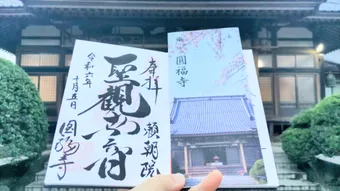 奉拝
瀬朝院
聖観世音
令和六年
十月五日
圓福寺
圓福寺